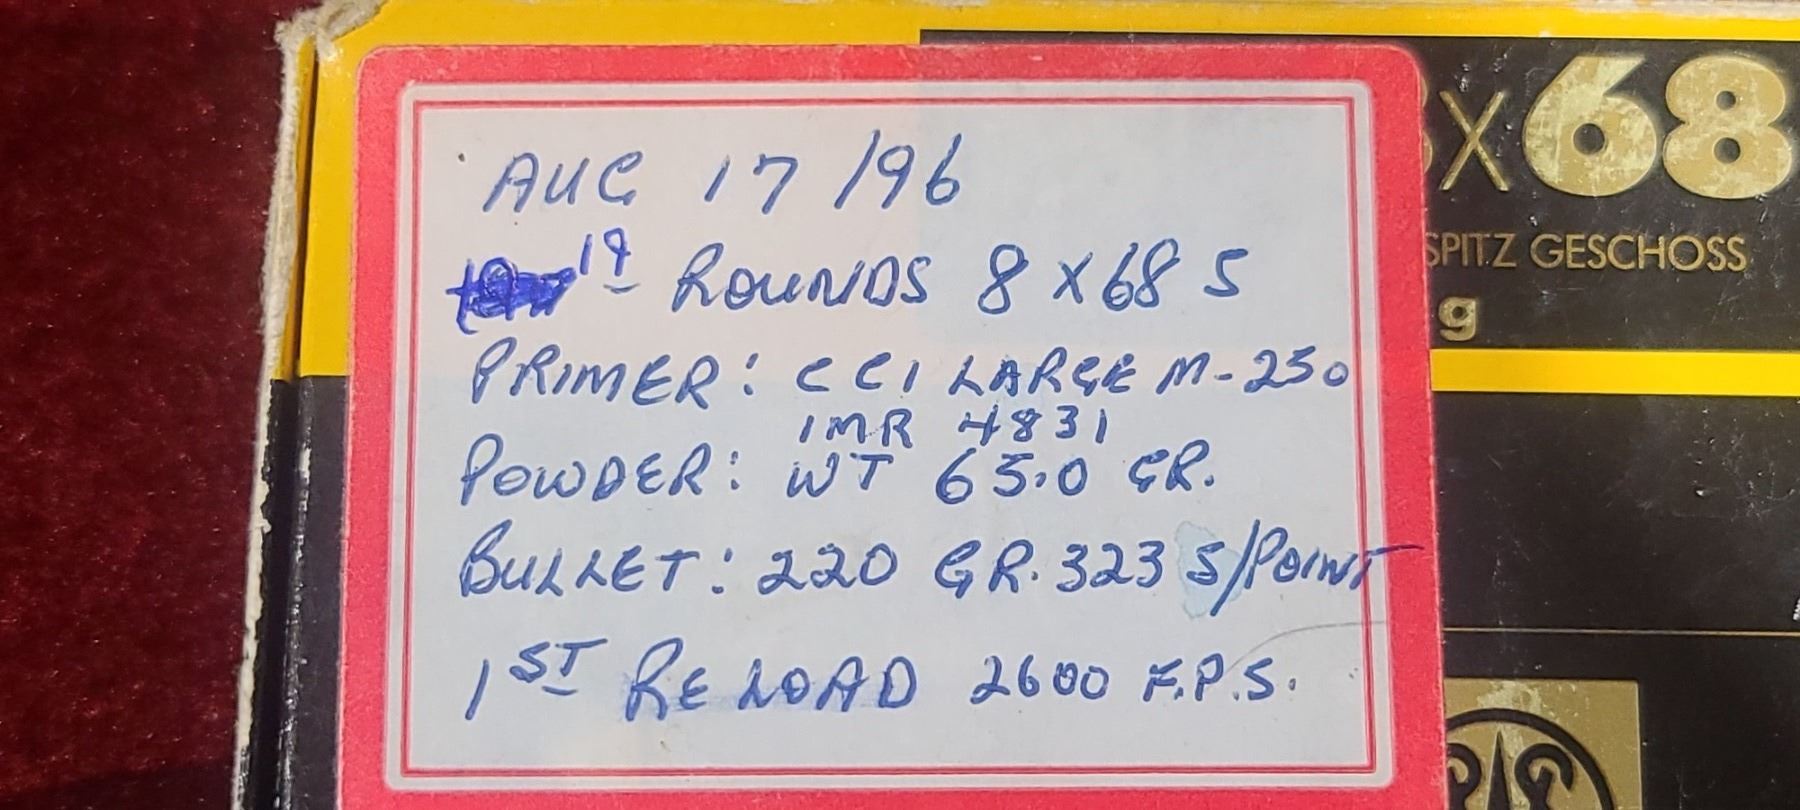 AUG 17/96
19 ROUNDS 8 X 68 S
PRIMER: CCI LARGE M-250
IMR 4831
POWDER: WT 65.0 GR.
BULLET: 220 GR. 323 S/POINT
1ST RELOAD 2600 F.P.S.
X68
SPITZ GESCHOSS
g